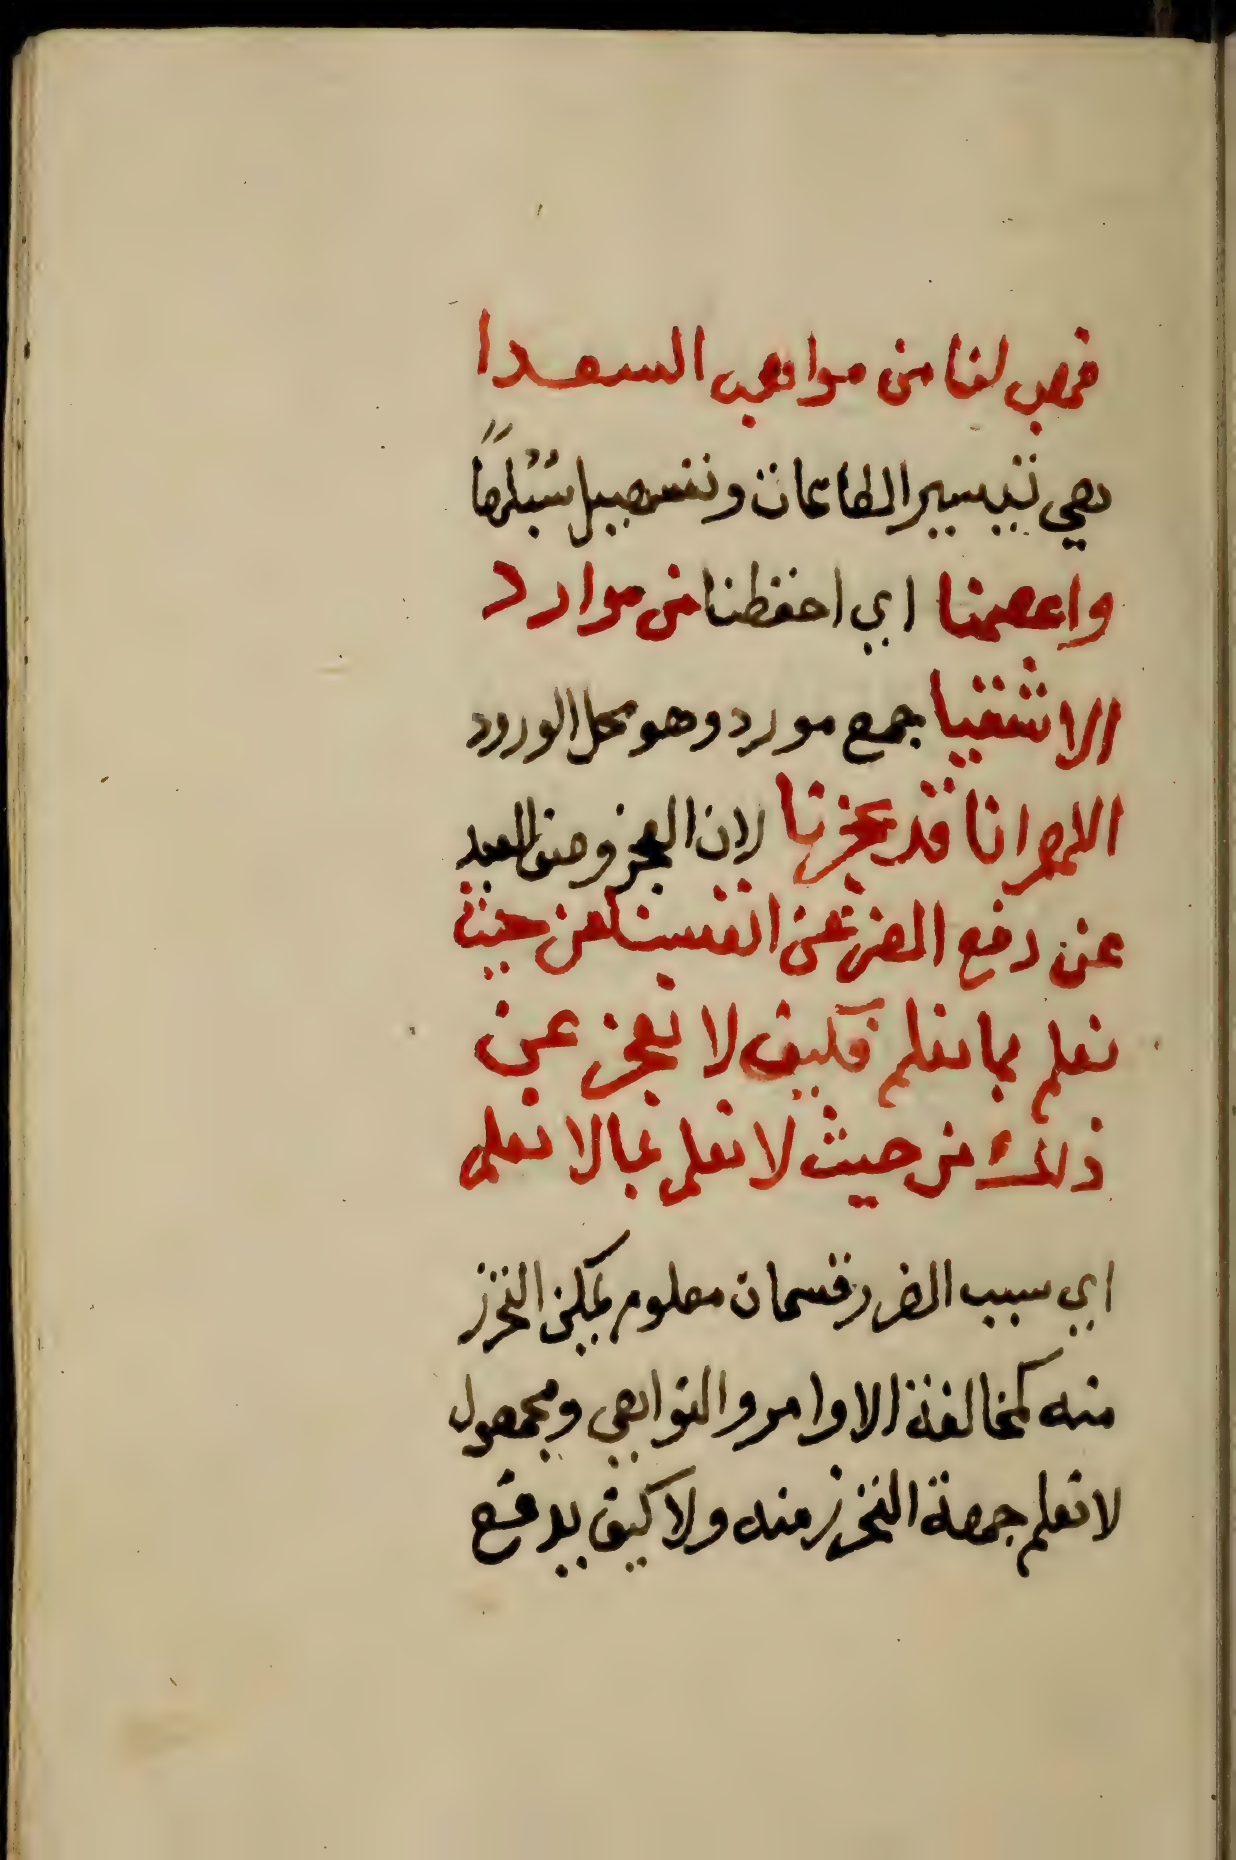 فهب لنا من مواهب السعدا
وهي تيسير الطاعات وتسهيل سُبُلها
واعصمنا اي احفظنا من موارد
الاشقيا جمع مورد وهو محل الورود
اللهم انا قد عجزنا لان العجز وصف العبد
عن دفع الضر عن انفسنا من حيث
نعلم بما نعلم فكيف لا نعجز عن
ذلك من حيث لا نعلم بما لا نعلم
اي سبب الضرر قسمان معلوم يمكن التحرز
منه كمخالفة الاوامر والنواهي ومجهول
لا نعلم جهة التحرز منه ولا كيف يدفع